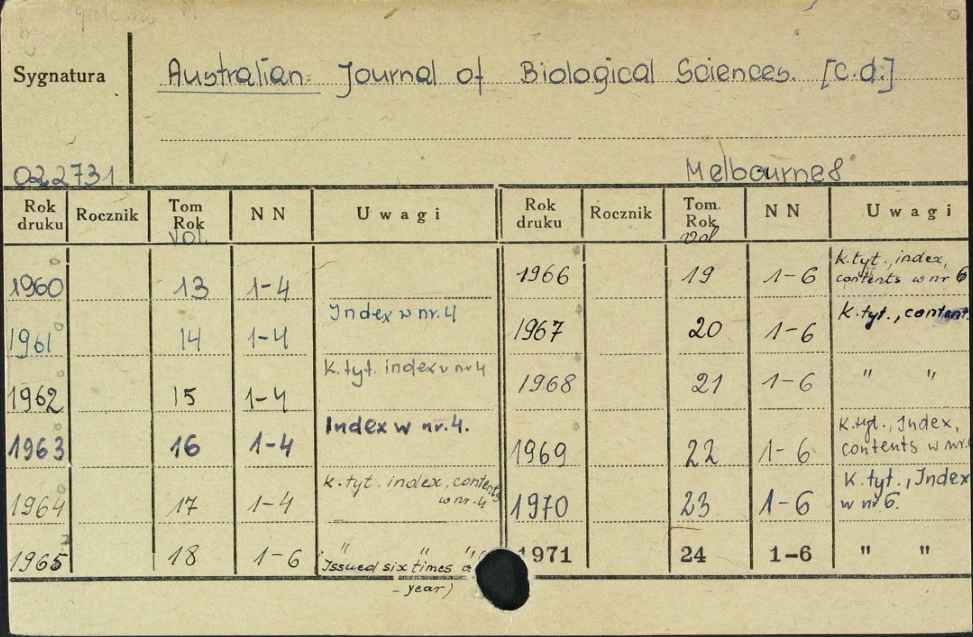 Sygnatura
Australian Journal of Biological Sciences. [c.d.]
022731
Melbourne8
Rok druku Rocznik Tom Rok vol. NN Uwagi
1960 13 1-4
1961 14 1-4 Index w nr. 4
1962 15 1-4 K. tyt. index w nr 4
1963 16 1-4 Index w nr. 4.
1964 17 1-4 K. tyt. index, contents w nr. 4
1965 18 1-6 " " "
(Issued six times a
- year)
Rok druku Rocznik Tom. Rok vol NN Uwagi
1966 19 1-6 K. tyt., index, contents w nr 6
1967 20 1-6 K. tyt., content.
1968 21 1-6 " "
1969 22 1-6 K. tyt., Index, contents w nr.
1970 23 1-6 K. tyt., Index w nr 6.
1971 24 1-6 " "